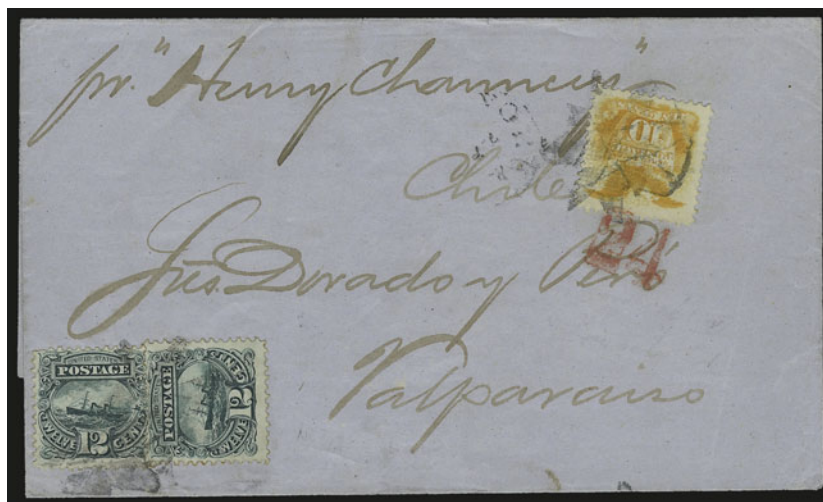 pr. "Henry Chauncey"
Chile
10
24
Sres. Dorado y
Valparaiso
UNITED STATES
POSTAGE
TWELVE 12 CENTS
UNITED STATES
POSTAGE
TWELVE 12 CENTS